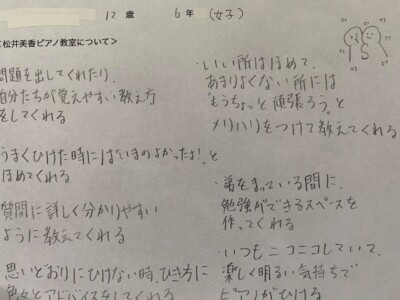 12歳 6年(女子)
松井美香ピアノ教室について＞
問題を出してくれたり、
自分たちが覚えやすい教え方
をしてくれる
うまくひけた時には「いまのよかったよ!」と
ほめてくれる
質問に詳しく分かりやすい
ように教えてくれる
思いどおりにひけない時、ひき方に
色々とアドバイスをしてくれる
・いい所はほめて、
あまりよくない所には
"もうちょっと頑張ろう"と
メリハリをつけて教えてくれる
・弟をまっている間に、
勉強ができるスペースを
作ってくれる
・いつもニコニコしていて、
楽しく明るい気持ちで
ピアノがひける